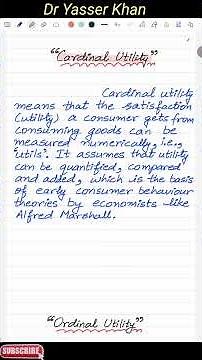 Dr Yasser Khan
"Cardinal Utility"
Cardinal utility
means that the satisfaction
(utility) a consumer gets from
consuming goods can be
measured numerically, i.e.,
"utils". It assumes that utility
can be quantified, compared
and added, which is the basis
of early consumer behaviour
theories by economists like
Alfred Marshall.
"Ordinal Utility"
SUBSCRIBE